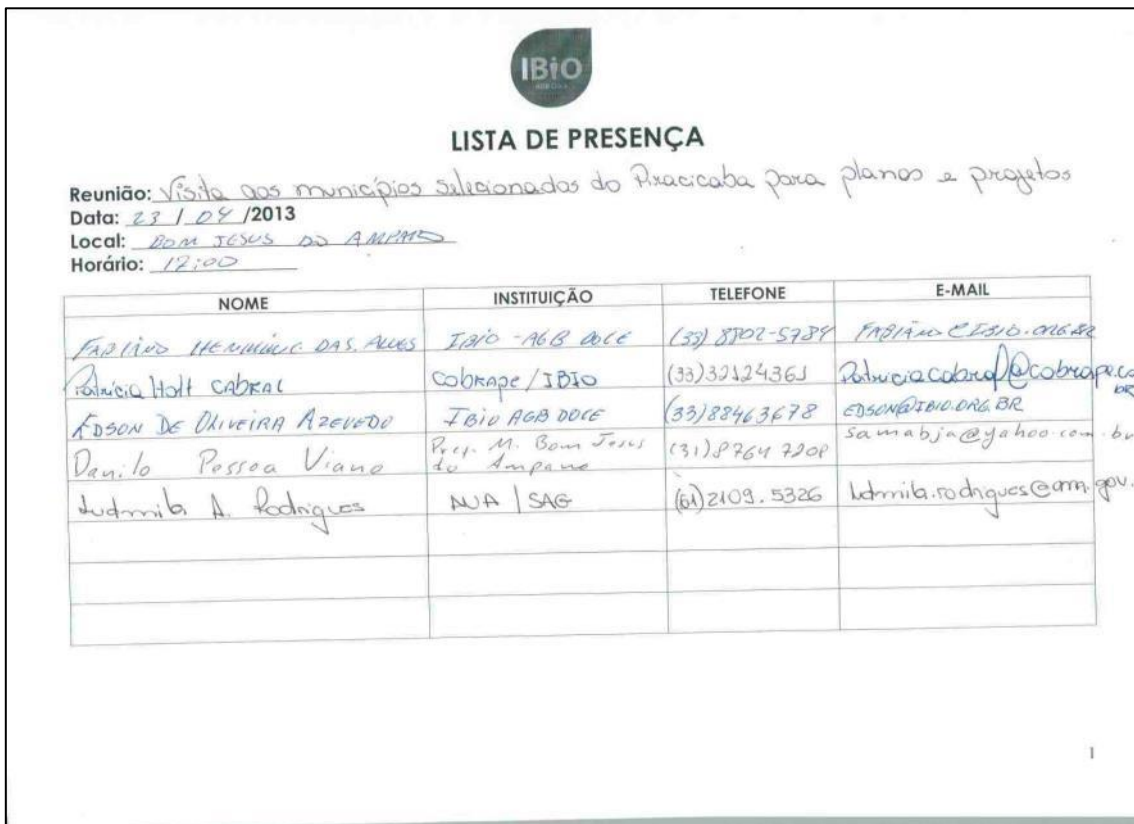 IBiO
AGB DOCE
LISTA DE PRESENÇA
Reunião: Visita aos municípios selecionados do Piracicaba para planos e projetos
Data: 23 / 04 /2013
Local: BOM JESUS DO AMPARO
Horário: 17:00
NOME INSTITUIÇÃO TELEFONE E-MAIL
FABIANO HENRIQUE DAS. ALVES IBIO - AGB DOCE (33) 8802-5784 FABIANO@IBIO.ORG.BR
Patricia Holt CABRAL CObRAPE / IBIO (33)32124361 Patriciacabral@cobrape.co
BR
EDSON DE OLIVEIRA AZEVEDO IBIO AGB DOCE (33)88463678 EDSON@IBIO.ORG.BR
Danilo Pessoa Viana Pref. M. Bom Jesus do Amparo (31)8764 7208 samabja@yahoo.com.br
Ludmila A. Rodrigues / SAG (61)2109.5326 ludmila.rodrigues@ana.gov.
1